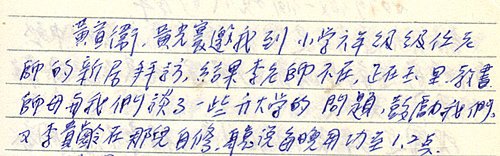 黃首衛，黃光寰邀我到小学六年級級任老
師的新居拜訪，結果李老師不在，正在玉里教書
師母與我們談了一些升大学的問題，鼓勵我們。
又李實齡在那兒自修，聽说每晚用功至1,2点.